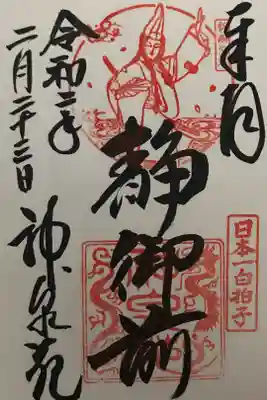 奉拝
静御前
日本一白拍子
令和二年
二月二十三日
神泉苑